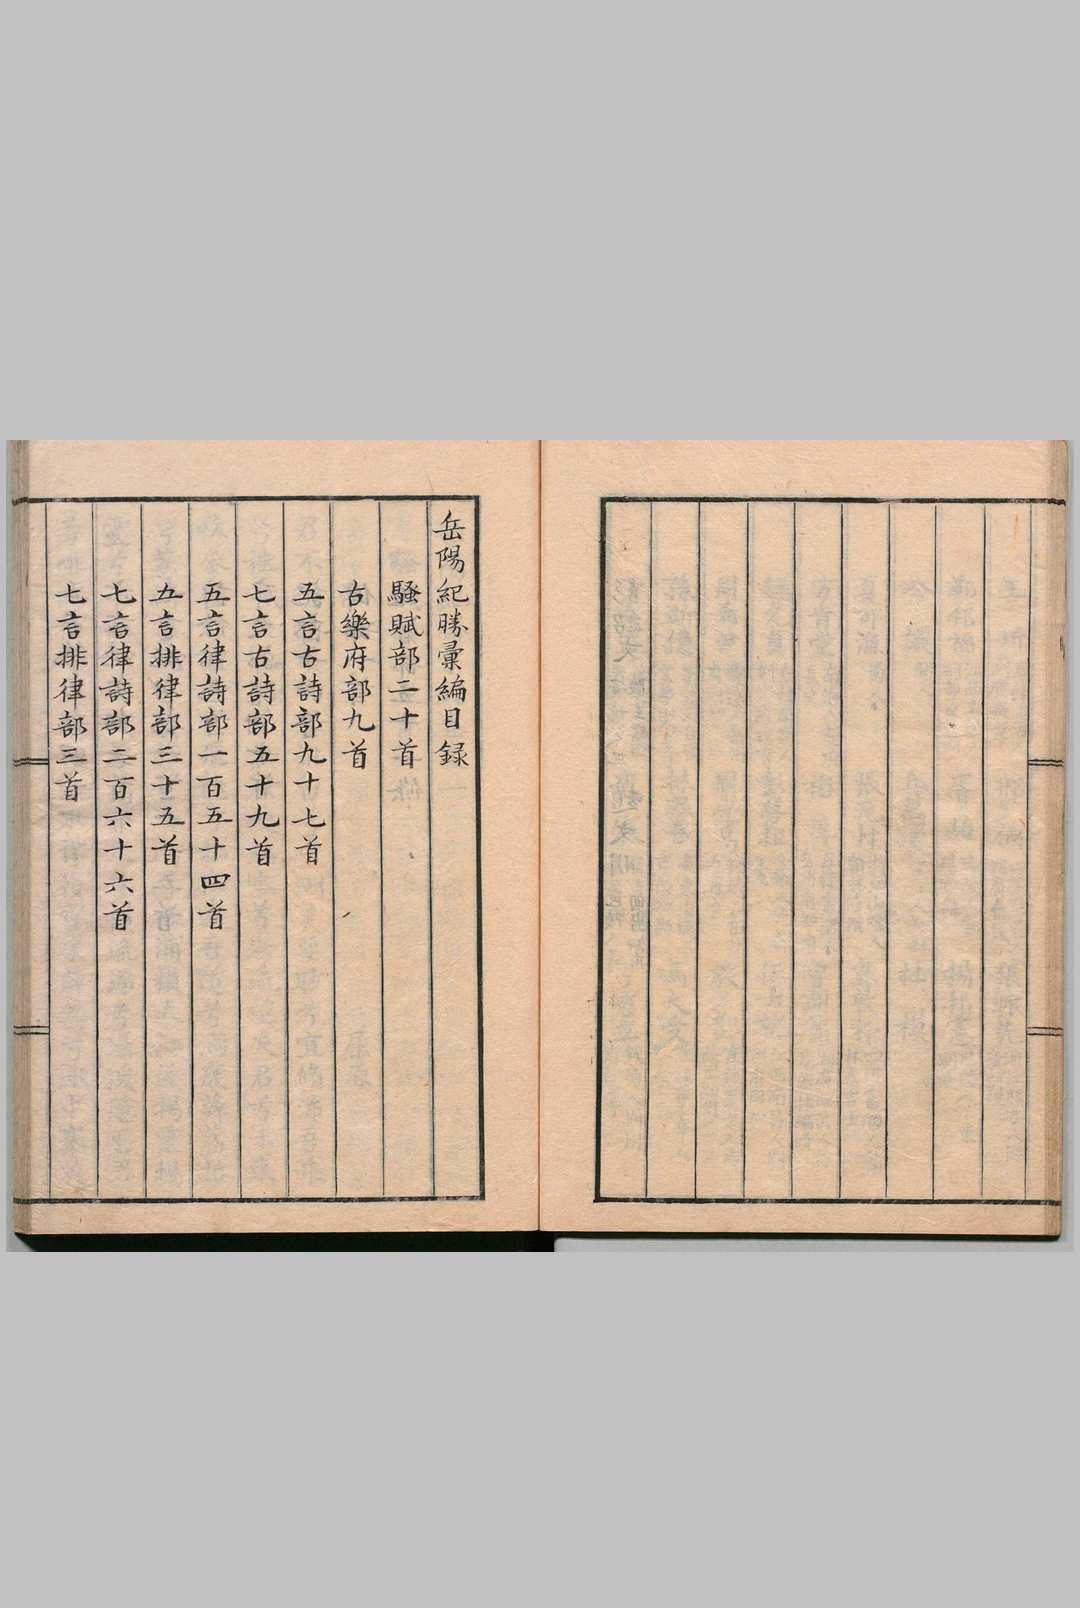 岳陽紀勝彙編目録
騷賦部二十首
古樂府部九首
五言古詩部九十七首
七言古詩部五十九首
五言律詩部一百五十四首
五言排律部三十五首
七言律詩部二百六十六首
七言排律部三首